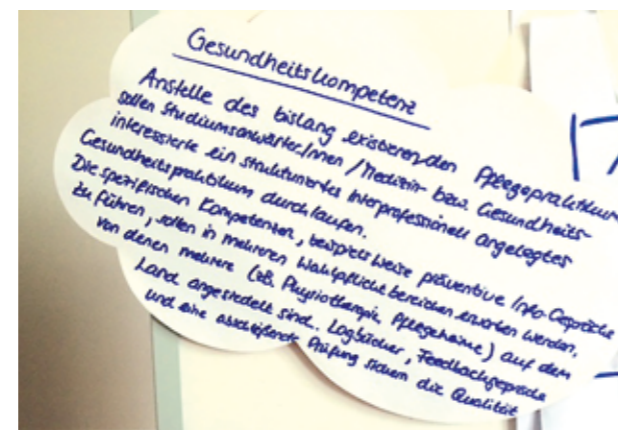 Gesundheitskompetenz
Anstelle des bislang existierenden Pflegepraktikum
sollen Studiumsanwärter/innen / Medizin- bzw. Gesundheits-
interessierte ein strukturiertes interprofessionell angelegtes
Gesundheitspraktikum durchlaufen.
Die spezifischen Kompetenzen, beispielsweise präventive Info-Gespräche
zu führen, sollen in mehreren Wahlpflichtbereichen erworben werden,
von denen mehrere (zB. Physiotherapie, Pflegeheime) auf dem
Land angesiedelt sind. Logbücher, Feedbackgespräche
und eine abschließende Prüfung sichern die Qualität